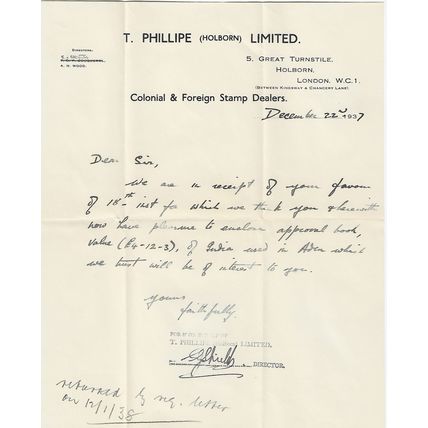 T. PHILLIPE (HOLBORN) LIMITED.
DIRECTORS:
A. H. WOOD.
5, GREAT TURNSTILE,
HOLBORN,
LONDON, W.C.1.
(BETWEEN KINGSWAY & CHANCERY LANE)
Colonial & Foreign Stamp Dealers.
December 22nd 1937
Dear Sir,
We are in receipt of your favour
of 18th inst for which we thank you & herewith
now have pleasure to enclose approval book,
value (£4-12-3), of India used in Aden which
we trust will be of interest to you.
yours
faithfully.
T. PHILLIPE (Holborn) LIMITED.
DIRECTOR.
returned by reg. letter
on 12/1/38